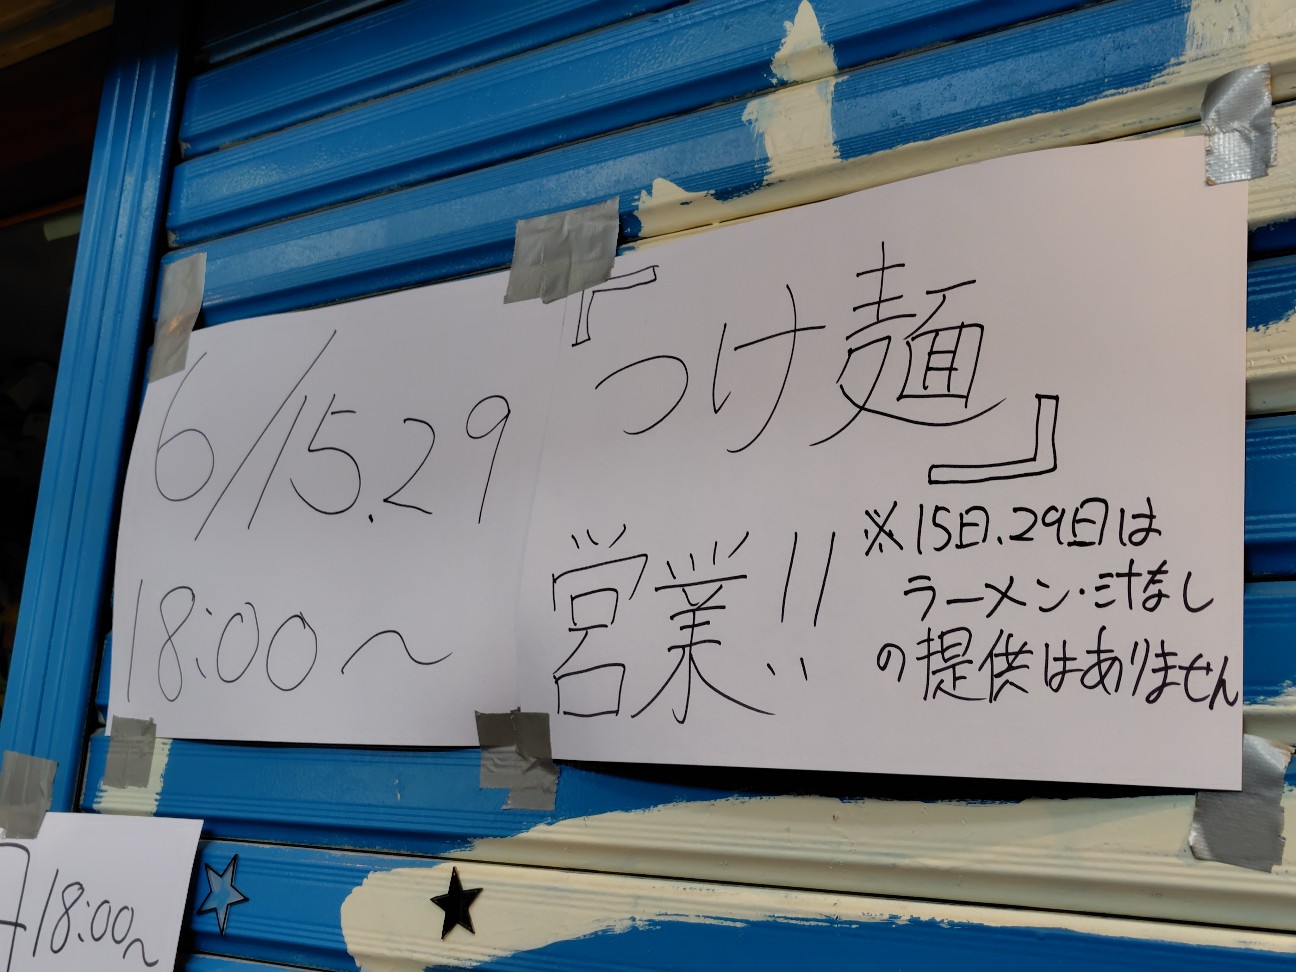 6/15.29
18:00〜
『つけ麺』
営業!!
※15日、29日は
ラーメン・汁なし
の提供はありません
18:00〜